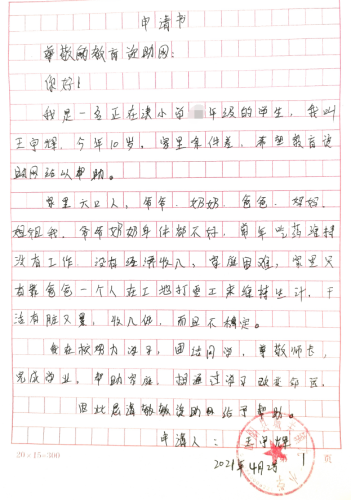 申请书
尊敬的教育资助网：
你好！
我是一名正在读小学 年级的学生，我叫
王 辉，今年10岁。家里条件差，希望教育资
助网给以帮助。
家里六口人，爷爷、奶奶、爸爸、妈妈、
姐姐我，爷爷奶奶身体都不好，常年吃药维持
没有工作，没有经济收入，家庭困难，家里只
有靠爸爸一个人在工地打零工来维持生计，干
活有脏又累，收入低，而且不稳定。
我在校努力学习，团结同学，尊敬师长，
完成学业，帮助家庭，想通过学习改变命运，
因此恳请教育资助网给予帮助。
申请人：王 辉
2021年4月2号
20×15=300
页